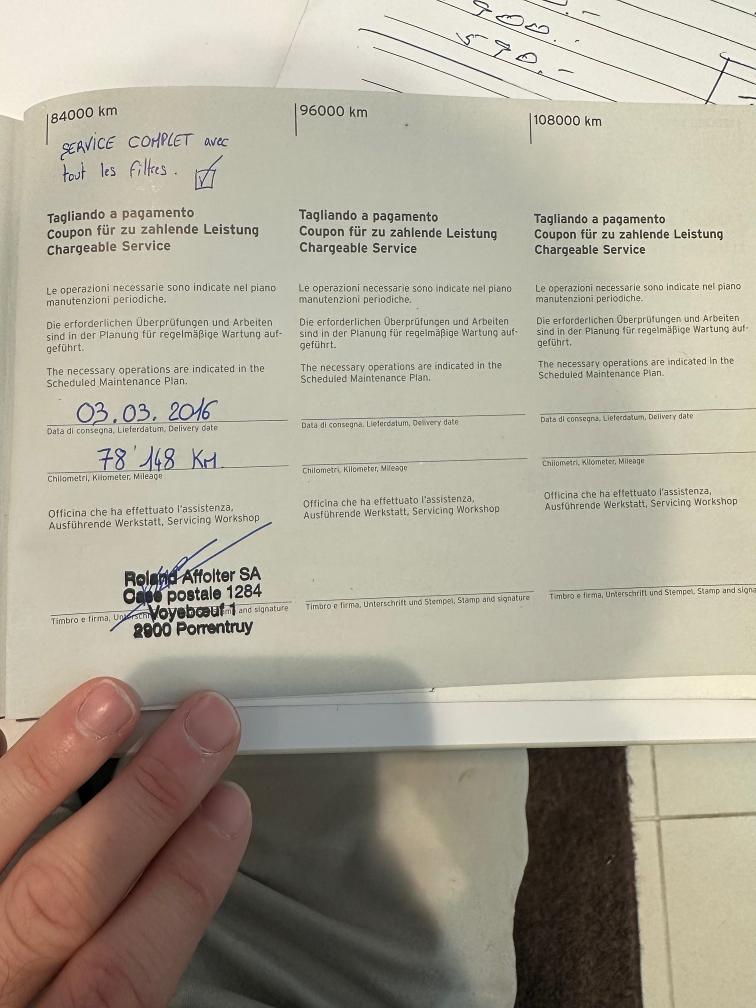 900.-
590.-
84000 km
SERVICE COMPLET avec
tout les filtres.
Tagliando a pagamento
Coupon für zu zahlende Leistung
Chargeable Service
Le operazioni necessarie sono indicate nel piano
manutenzioni periodiche.
Die erforderlichen Überprüfungen und Arbeiten
sind in der Planung für regelmäßige Wartung auf-
geführt.
The necessary operations are indicated in the
Scheduled Maintenance Plan.
03.03.2016
Data di consegna, Lieferdatum, Delivery date
78'148 KM.
Chilometri, Kilometer, Mileage
Officina che ha effettuato l'assistenza,
Ausführende Werkstatt, Servicing Workshop
Roland Affolter SA
Case postale 1284
Voyebœuf 1
2900 Porrentruy
Timbro e firma, and signature
96000 km
Tagliando a pagamento
Coupon für zu zahlende Leistung
Chargeable Service
Le operazioni necessarie sono indicate nel piano
manutenzioni periodiche.
Die erforderlichen Überprüfungen und Arbeiten
sind in der Planung für regelmäßige Wartung auf-
geführt.
The necessary operations are indicated in the
Scheduled Maintenance Plan.
Data di consegna, Lieferdatum, Delivery date
Chilometri, Kilometer, Mileage
Officina che ha effettuato l'assistenza,
Ausführende Werkstatt, Servicing Workshop
Timbro e firma, Unterschrift und Stempel, Stamp and signature
108000 km
Tagliando a pagamento
Coupon für zu zahlende Leistung
Chargeable Service
Le operazioni necessarie sono indicate nel piano
manutenzioni periodiche.
Die erforderlichen Überprüfungen und Arbeiten
sind in der Planung für regelmäßige Wartung auf-
geführt.
The necessary operations are indicated in the
Scheduled Maintenance Plan.
Data di consegna, Lieferdatum, Delivery date
Chilometri, Kilometer, Mileage
Officina che ha effettuato l'assistenza,
Ausführende Werkstatt, Servicing Workshop
Timbro e firma, Unterschrift und Stempel, Stamp and signa